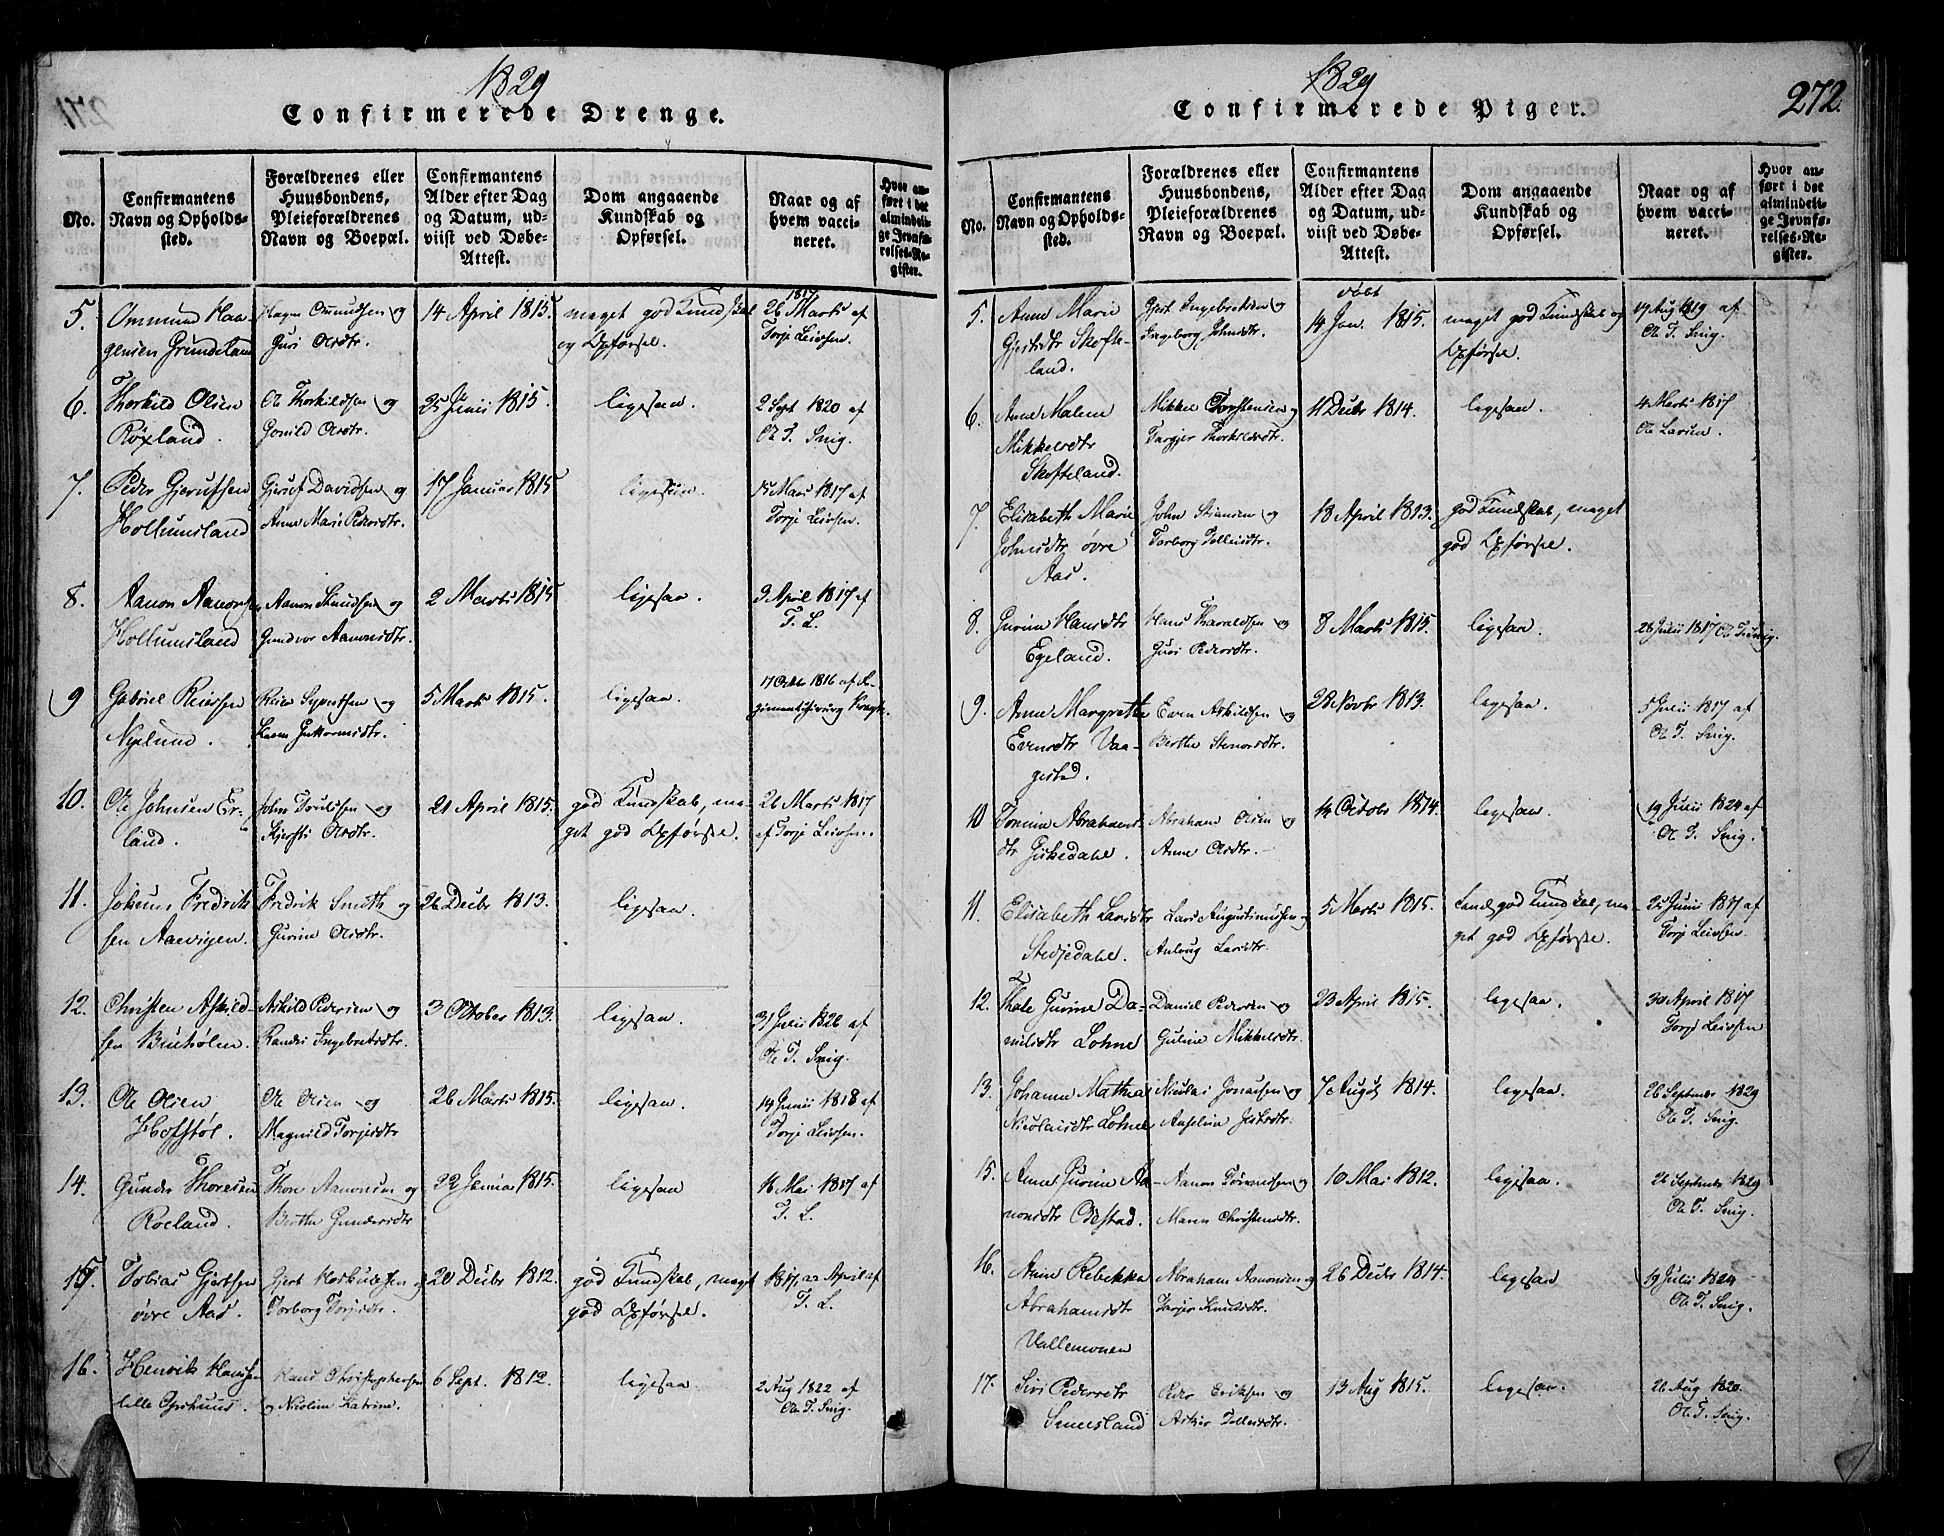 1829
Confirmerede Drenge.
No.
Confirmantens
Navn og Opholds-
sted.
Forældrenes eller
Huusbondens,
Pleieforældrenes
Navn og Boepæl.
Confirmantens
Alder efter Dag
og Datum, ud-
viist ved Døbe-
Attest.
Dom angaaende
Kundskab og
Opførsel.
Naar og af
hvem vacci-
neret.
Hvor an-
ført i det
almindeli-
ge Jevnfø-
relses-Re-
gister.
5.
Ommund Haa-
gensen Grundeland
Ommundsen og
Guri Olsdtr.
14 April 1815.
maget god Kundskab
og Opførsel.
1817
26 Marts af
Torje Leivsen.
6.
Thorkild Olsen
Røxland.
Ole Thorkildsen og
Gonild Olsdtr.
25 Junii 1815.
ligesaa.
2 Sept 1820 af
Ole T. Snig.
7.
Peder Gjerulfsen
Hollumsland
Gjerulf Davidsen og
Anne Marie Pedersdtr.
17 Januar 1815
ligesaa.
15 Marts 1817 af
Torje Leivsen.
8.
Aanon Aanons
Hollumsland
Aanon og
Gundvor Aanonsdtr.
2 Marts 1815
ligesaa.
9 April 1817 af
T. L.
9
Gabriel Reiersen
Nylund.
Reier Syvertsen og
Karen
5 Marts 1815.
ligesaa.
17 Octbr 1816 af Re-
gimentschirurg
10.
Ole Johnsen Er-
land.
John og
Kjersti Olsdtr.
21 April 1815.
god Kundskab, ma-
get god Opførsel.
26 Marts 1817
af Torje Leivsen.
11.
Johannes Fredrik-
sen Aasvigen.
Fredrik Smith og
Gurine Olsdtr.
26 Decbr 1813.
ligesaa.
12.
Christen Askild-
sen
Askild Pedersen og
Randi Ingebretsdtr.
3 October 1813.
ligesaa.
31 Julii 1826 af
Ole T. Snig.
13.
Ole Olsen
Hofstøl.
Ole Olsen og
Magnild Torjesdtr
26 Marts 1815.
ligesaa.
14 Junii 1818 af
Torje Leivsen.
14.
Gunder Thoresen
Roeland.
Thore Aanonsen og
Berthe Gundersdtr
22 Januar 1815.
ligesaa
16 Mai 1817 af
T. L.
15.
Tobias Gjertsen
øvre Aas.
Gjert og
Torborg Torjesdtr.
20 Decbr 1812.
god Kundskab, maget
god Opførsel.
1817 22 April af
T. L.
16.
Henrik Hansen
lille
Hans Christophersen
og Nicoline Katrine.
6 Sept. 1812.
ligesaa.
2 Aug 1822 af
Ole T. Snig.
1829
Confirmerede Piger.
272.
No.
Confirmantens
Navn og Opholds-
sted.
Forældrenes eller
Huusbondens,
Pleieforældrenes
Navn og Boepæl.
Confirmantens
Alder efter Dag
og Datum, ud-
viist ved Døbe-
Attest.
Dom angaaende
Kundskab og
Opførsel.
Naar og af
hvem vacci-
neret.
Hvor an-
ført i det
almindeli-
ge Jevnfø-
relses-Re-
gister.
5.
Anne Marie
Gjertsdtr Skofte-
land.
Gjert Ingebretsen og
Ingeborg Johnsdtr.
døbt
14 Jan. 1815.
maget god Kundskab og
Opførsel.
17 Aug 1819 af
Ole T. Snig.
6.
Anne Malene
Mikkelsdtr
Skofteland.
Mikkel Torstensen og
Targjer Thorkildsdtr.
11 Decbr 1814.
ligesaa.
4 Marts 1817
Ole Larsen.
7.
Elisabeth Marie
Johnsdtr øvre
Aas.
John og
Torborg Tollevsdtr.
18 April 1813.
god Kundskab, maget
god Opførsel.
8.
Gurine Hansdtr
Egeland.
Hans Haraldsen og
Guri Pedersdtr.
8 Marts 1815.
ligesaa.
28 Julii 1817 Ole T. Snig.
9.
Anne Margrethe
Evensdtr Vaa-
gestad.
Even Askildsen og
Berthe Stenersdtr.
28 Novbr 1813.
ligesaa.
5 Julii 1817 af
Ole T. Snig.
10
Tomine Abrahams-
dtr
Abraham Olsen og
Anne Olsdtr.
14 Octobr 1814.
ligesaa.
19 Julii 1824 af
Ole T. Snig.
11.
Elisabeth Larsdtr
Stedjedahl.
Lars Augustinussen og
Anlaug Larsdtr.
5 Marts 1815.
god Kundskab, ma-
get god Opførsel.
25 Junii 1817 af
Torje Leivsen.
12.
Thale Gurine Da-
nielsdtr Lohne
Daniel Pedersen og
Guline Mikkelsdtr.
23 April 1815.
ligesaa.
30 April 1817
Torje Leivsen
13.
Johanne Mathea
Nicolaisdtr Lohne
Nicolai og
7 August 1814.
ligesaa.
26 Septmbr 1829
Ole T. Snig.
15.
Anne Gurine Aa-
nonsdtr Odestad.
Aanon og
Maren Christensdtr.
10 Mai 1812.
ligesaa.
26 Septmbr 1829
Ole T. Snig.
16.
Anne Rebekka
Abrahamsdtr
Vallemonen
Abraham Aanonsen og
Targjer Knudsdtr.
26 Decbr 1814.
ligesaa
19 Julii 1824
Ole T. Snig.
17.
Siri Pedersdtr
Smeesland
Peder Eriksen og
Tollevsdtr.
13 Aug 1815.
ligesaa.
26 Aug 1820.
Ole T. Snig.